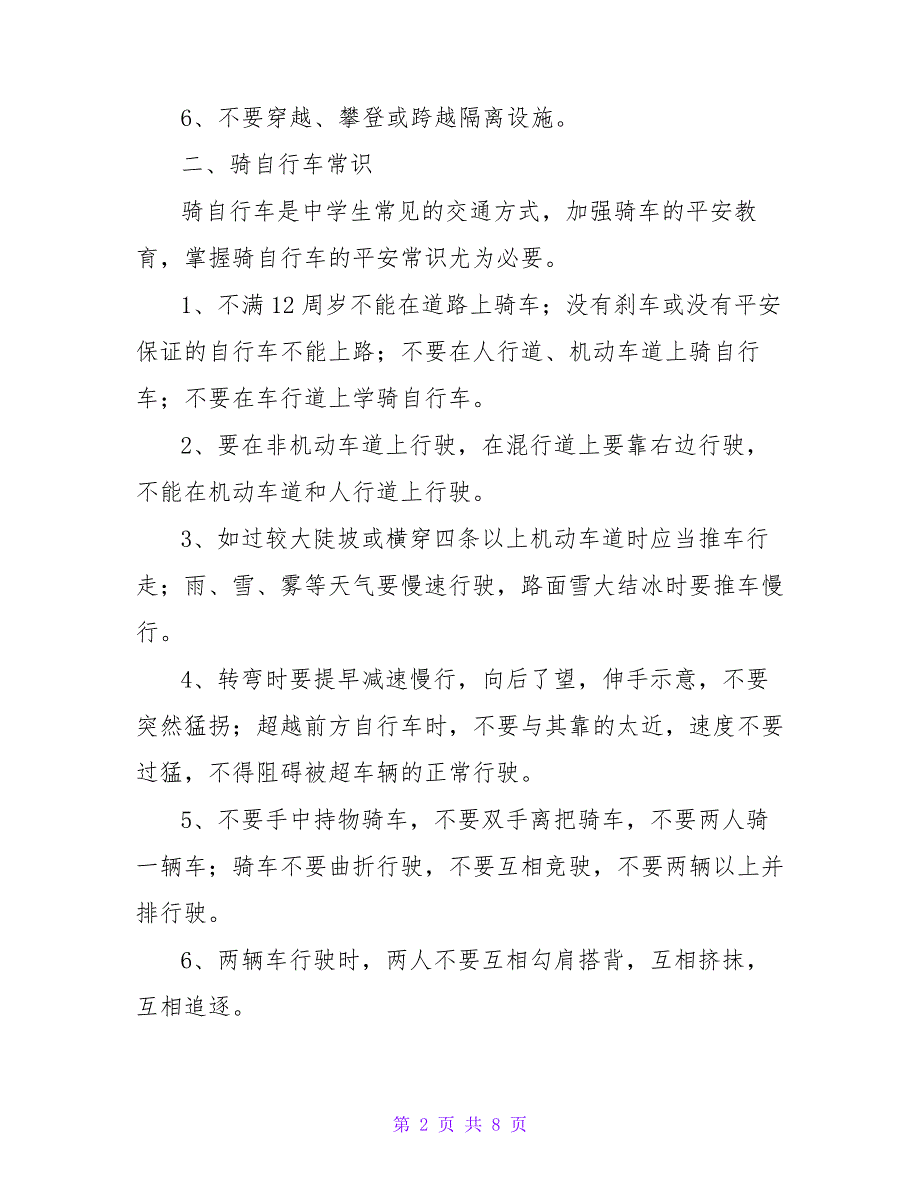 6、不要穿越、攀登或跨越隔离设施。
二、骑自行车常识
骑自行车是中学生常见的交通方式，加强骑车的平安教
育，掌握骑自行车的平安常识尤为必要。
1、不满 12 周岁不能在道路上骑车；没有刹车或没有平安
保证的自行车不能上路；不要在人行道、机动车道上骑自行
车；不要在车行道上学骑自行车。
2、要在非机动车道上行驶，在混行道上要靠右边行驶，
不能在机动车道和人行道上行驶。
3、如过较大陡坡或横穿四条以上机动车道时应当推车行
走；雨、雪、雾等天气要慢速行驶，路面雪大结冰时要推车慢
行。
4、转弯时要提早减速慢行，向后了望，伸手示意，不要
突然猛拐；超越前方自行车时，不要与其靠的太近，速度不要
过猛，不得阻碍被超车辆的正常行驶。
5、不要手中持物骑车，不要双手离把骑车，不要两人骑
一辆车；骑车不要曲折行驶，不要互相竞驶，不要两辆以上并
排行驶。
6、两辆车行驶时，两人不要互相勾肩搭背，互相挤抹，
互相追逐。
第 2 页 共 8 页